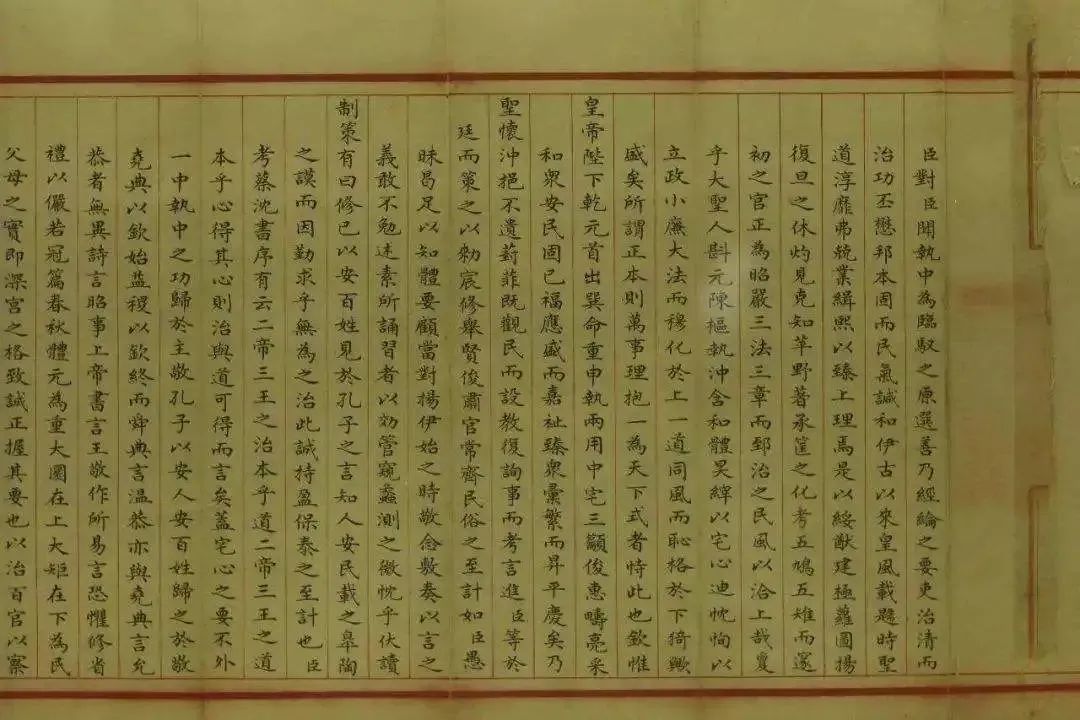 臣對臣聞執中為臨馭之原選善乃經綸之要吏治清而
治功丕懋邦本固而民氣諴和伊古以來皇風載邈時聖
道淳龐弗統業緝熙以臻上理焉是以綏猷建極蘿圖揚
復旦之休灼見克知莘野著承筐之化考五鳩五雉而邃
初之官正為昭嚴三法三章而郅治之民風以洽上哉敻
乎大聖人斟元陳樞執沖含和體晏緯以宅心迪忱恂以
立政小廉大法而穆化於上一道同風而恥格於下猗歟
盛矣所謂正本則萬事理抱一為天下式者恃此也欽惟
皇帝陛下乾元首出巽命重申執兩用中宅三籲俊惠疇亮采
和眾安民固已福應盛而嘉祉臻眾彙繁而昇平慶矣乃
聖懷沖挹不遺葑菲既觀民而設教復詢事而考言進臣等於
廷而策之以勑宸修舉賢俊肅官常齊民俗之至計如臣愚
昧曷足以知體要顧當對揚伊始之時敬念敷奏以言之
義敢不勉述素所誦習者以効管窺蠡測之微忱乎伏讀
制策有曰修已以安百姓見於孔子之言知人安民載之皋陶
之謨而因勤求乎無為之治此誠持盈保泰之至計也臣
考蔡沈書序有云二帝三王之治本乎道二帝三王之道
本乎心得其心則治與道可得而言矣蓋宅心之要不外
一中執中之功歸於主敬孔子以安人安百姓歸之於敬
堯典以欽始益稷以欽終而舜典言溫恭亦與堯典言允
恭者無異詩言昭事上帝書言王敬作所易言恐懼修省
禮以儼若冠篇春秋體元為重大圜在上大矩在下為民
父母之實即深宮之格致誠正握其要也以治百官以察